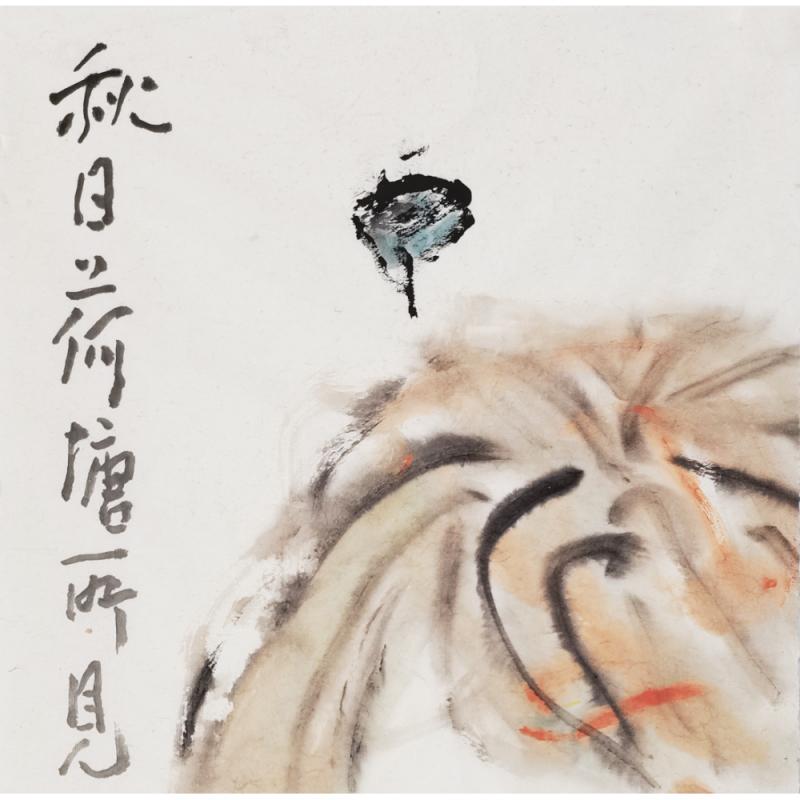 秋日荷塘所見